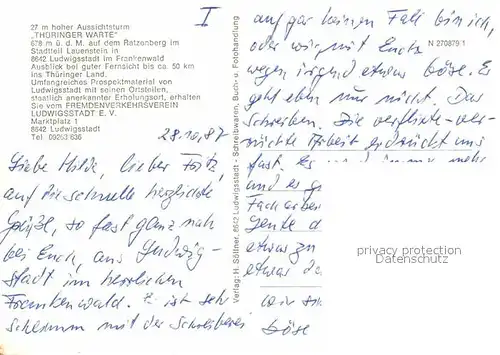 27 m hoher Aussichtsturm
"THÜRINGER WARTE"
678 m ü. d. M. auf dem Ratzenberg im
Stadtteil Lauenstein in
8642 Ludwigsstadt im Frankenwald
Ausblick bei guter Fernsicht bis ca. 50 km
ins Thüringer Land.
Umfangreiches Prospektmaterial von
Ludwigsstadt mit seinen Ortsteilen,
staatlich anerkannter Erholungsort, erhalten
Sie vom FREMDENVERKEHRSVEREIN
LUDWIGSSTADT E. V.
Marktplatz 1
8642 Ludwigsstadt
Tel. 09263 636
I
28.10.87
Liebe Hilde, lieber Fritz,
auf die schnelle herzlichste
Grüße, so fast ganz nah
bei Euch, aus Ludwig-
stadt im herrlichen
Frankenwald. Es ist sehr
schlimm mit der Schreiberei
Verlag: H. Söllner, 8642 Ludwigsstadt - Schreibwaren, Buch- u. Fotohandlung
N 270879 1
auf gar keinen Fall bin ich,
oder wir mit Euch
wegen irgend etwas böse. Es
geht eben nur nicht. Das
Schreiben. Die verflixte-ver-
Arbeit erdrückt uns
fast. Es mehr
und es
Facharbei
Leute
etwas zu
etwas
wir
böse
privacy protection
Datenschutz